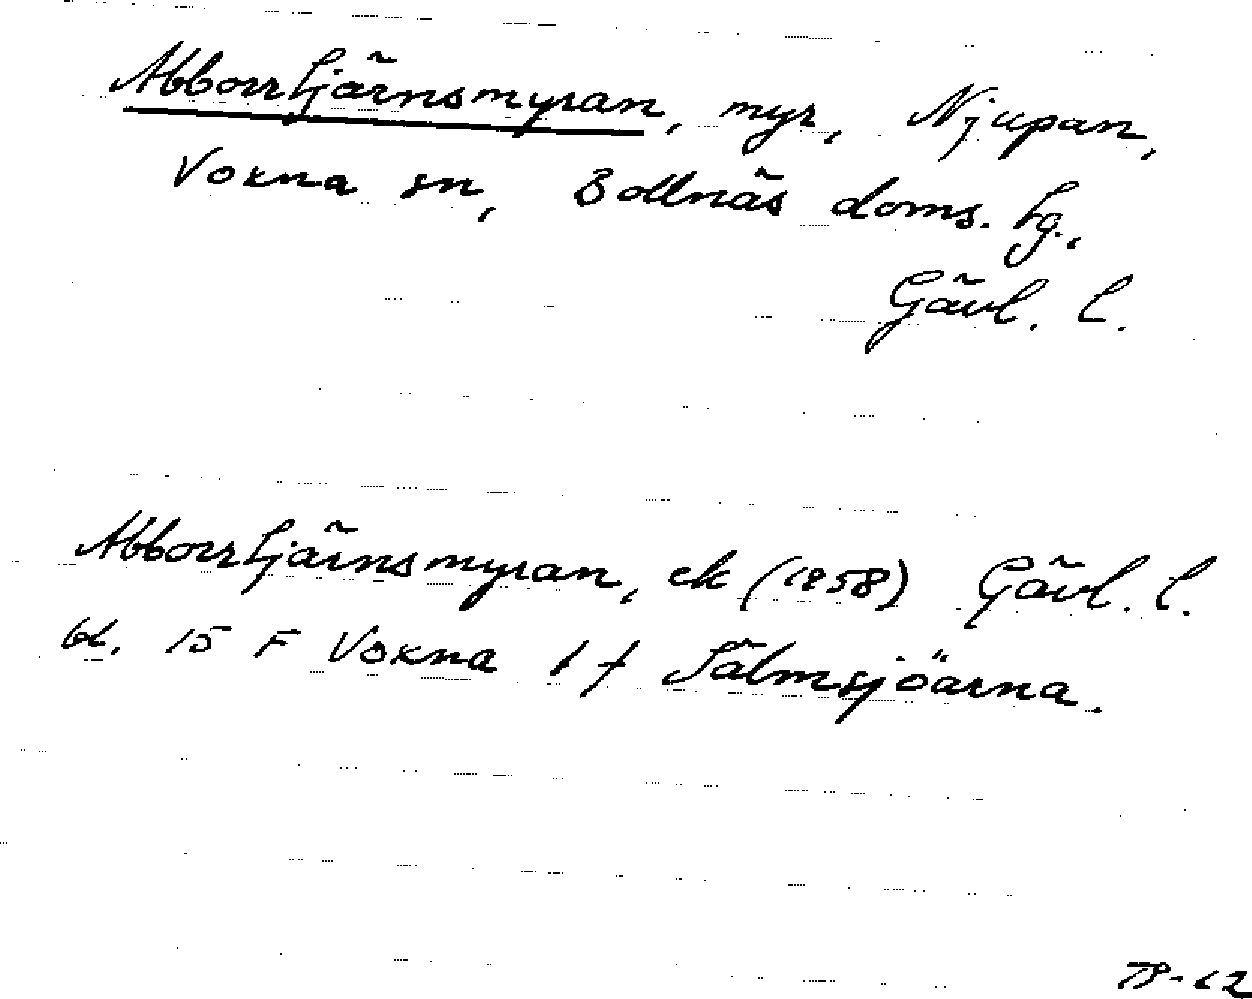 Abborrtjärnsmyran, myr, Njupan,
Voxna sn, Bollnäs doms. tg.,
Gävl. l.
Abborrtjärnsmyran, ek (1858) Gävl. l.
bl. 15 F Voxna 1 f Sälmsjöarna.
TP-62